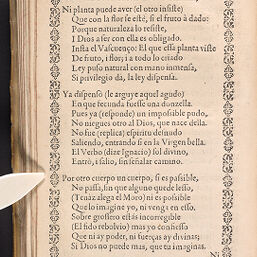 Ni planta puede aver (el otro insiste)
Que con la flor se esté, si el fruto à dado:
Porque naturaleza lo resiste,
I Dios a ser con ella es obligado.
Insta el Vascuenço: El que essa planta viste
De fruto, i flor; i a todo lo criado
Ley puso natural con mano inmensa,
Si privilegio da, la ley dispensa.
Ya dispensò (le arguye aquel agudo)
En que fecunda fuesse una donzella.
Pues ya (responde) un impossible pudo,
No niegues otro al Dios, que nace della.
No fue (replica) espiritu desnudo
Saliendo, entrando si en la Virgen bella.
El Verbo (dize Ignacio) sol divino,
Entrò, i salio, sin señalar camino.
Por otro cuerpo un cuerpo, si es passible,
No passa, sin que alguno quede lesso,
(Tenaz alega el Moro) ni es possible
Que lo imagine yo, ni venga en esso.
Sobre grossero estàs incorregible
(El fido rebolvio) mas yo confiesso
Que ni ay poder, ni fuerças ay divinas;
Si Dios no puede mas, que tu imaginas.
Ni